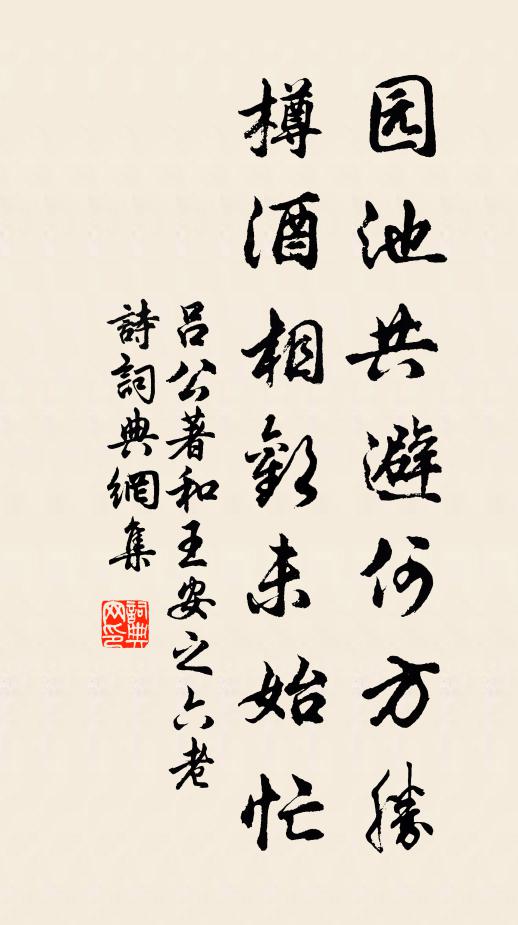 园池共避何方勝
樽酒相歡未始忙
吕公著和王安之六老
詩詞典網集
詞典網印